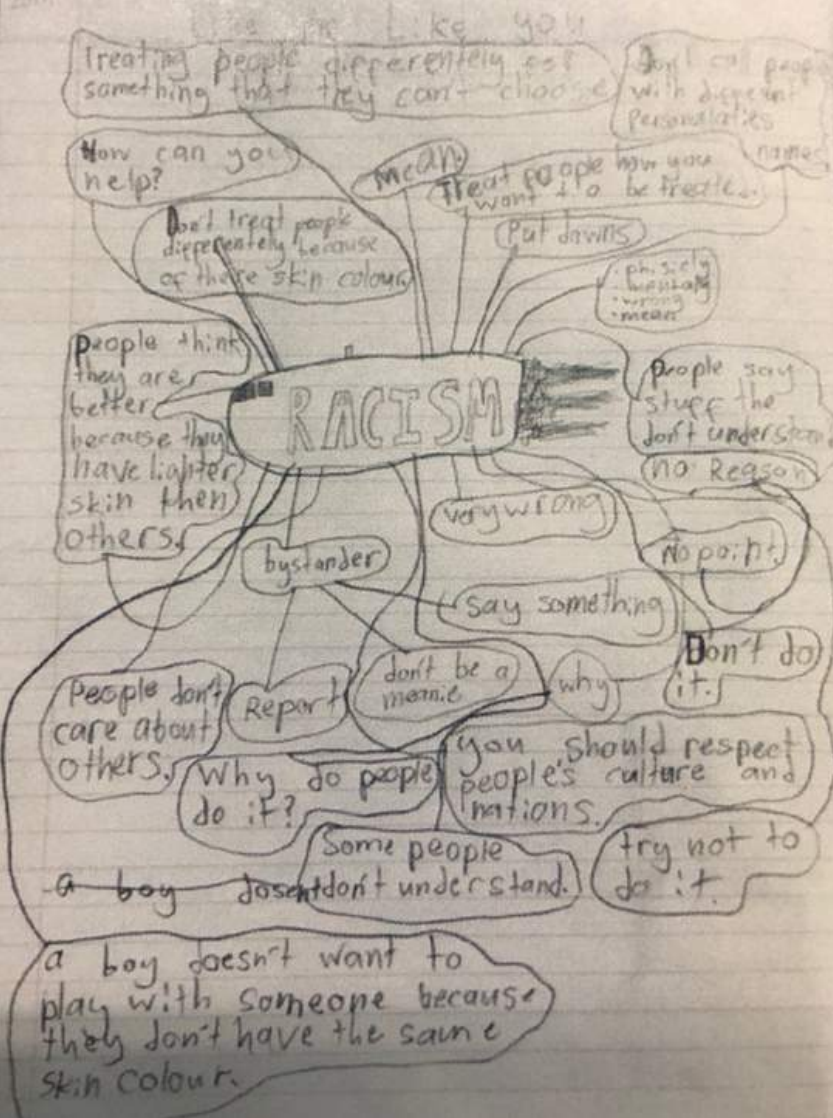 Like you
Treating people differentely
something that they can't choose
Don't call people
with different
personalaties
names
How can you
help?
mean
Treat people how you
want to be treated.
Don't treat people
differentely because
of there skin colour
Put downs
• phisicly
• mentaly
• wrong
• mean
People think
they are
better
because they
have lighter
skin then
others.
RACISM
People say
stuff the
don't understand
no Reason
very wrong
No point
bystander
say something
Don't do
it.
don't be a
meanie
why
Report
People don't
care about
others.
Why do people
do it?
you should respect
people's culture and
nations.
Some people
don't understand.
try not to
do it.
a boy dosent
a boy doesn't want to
play with someone because
they don't have the same
skin colour.